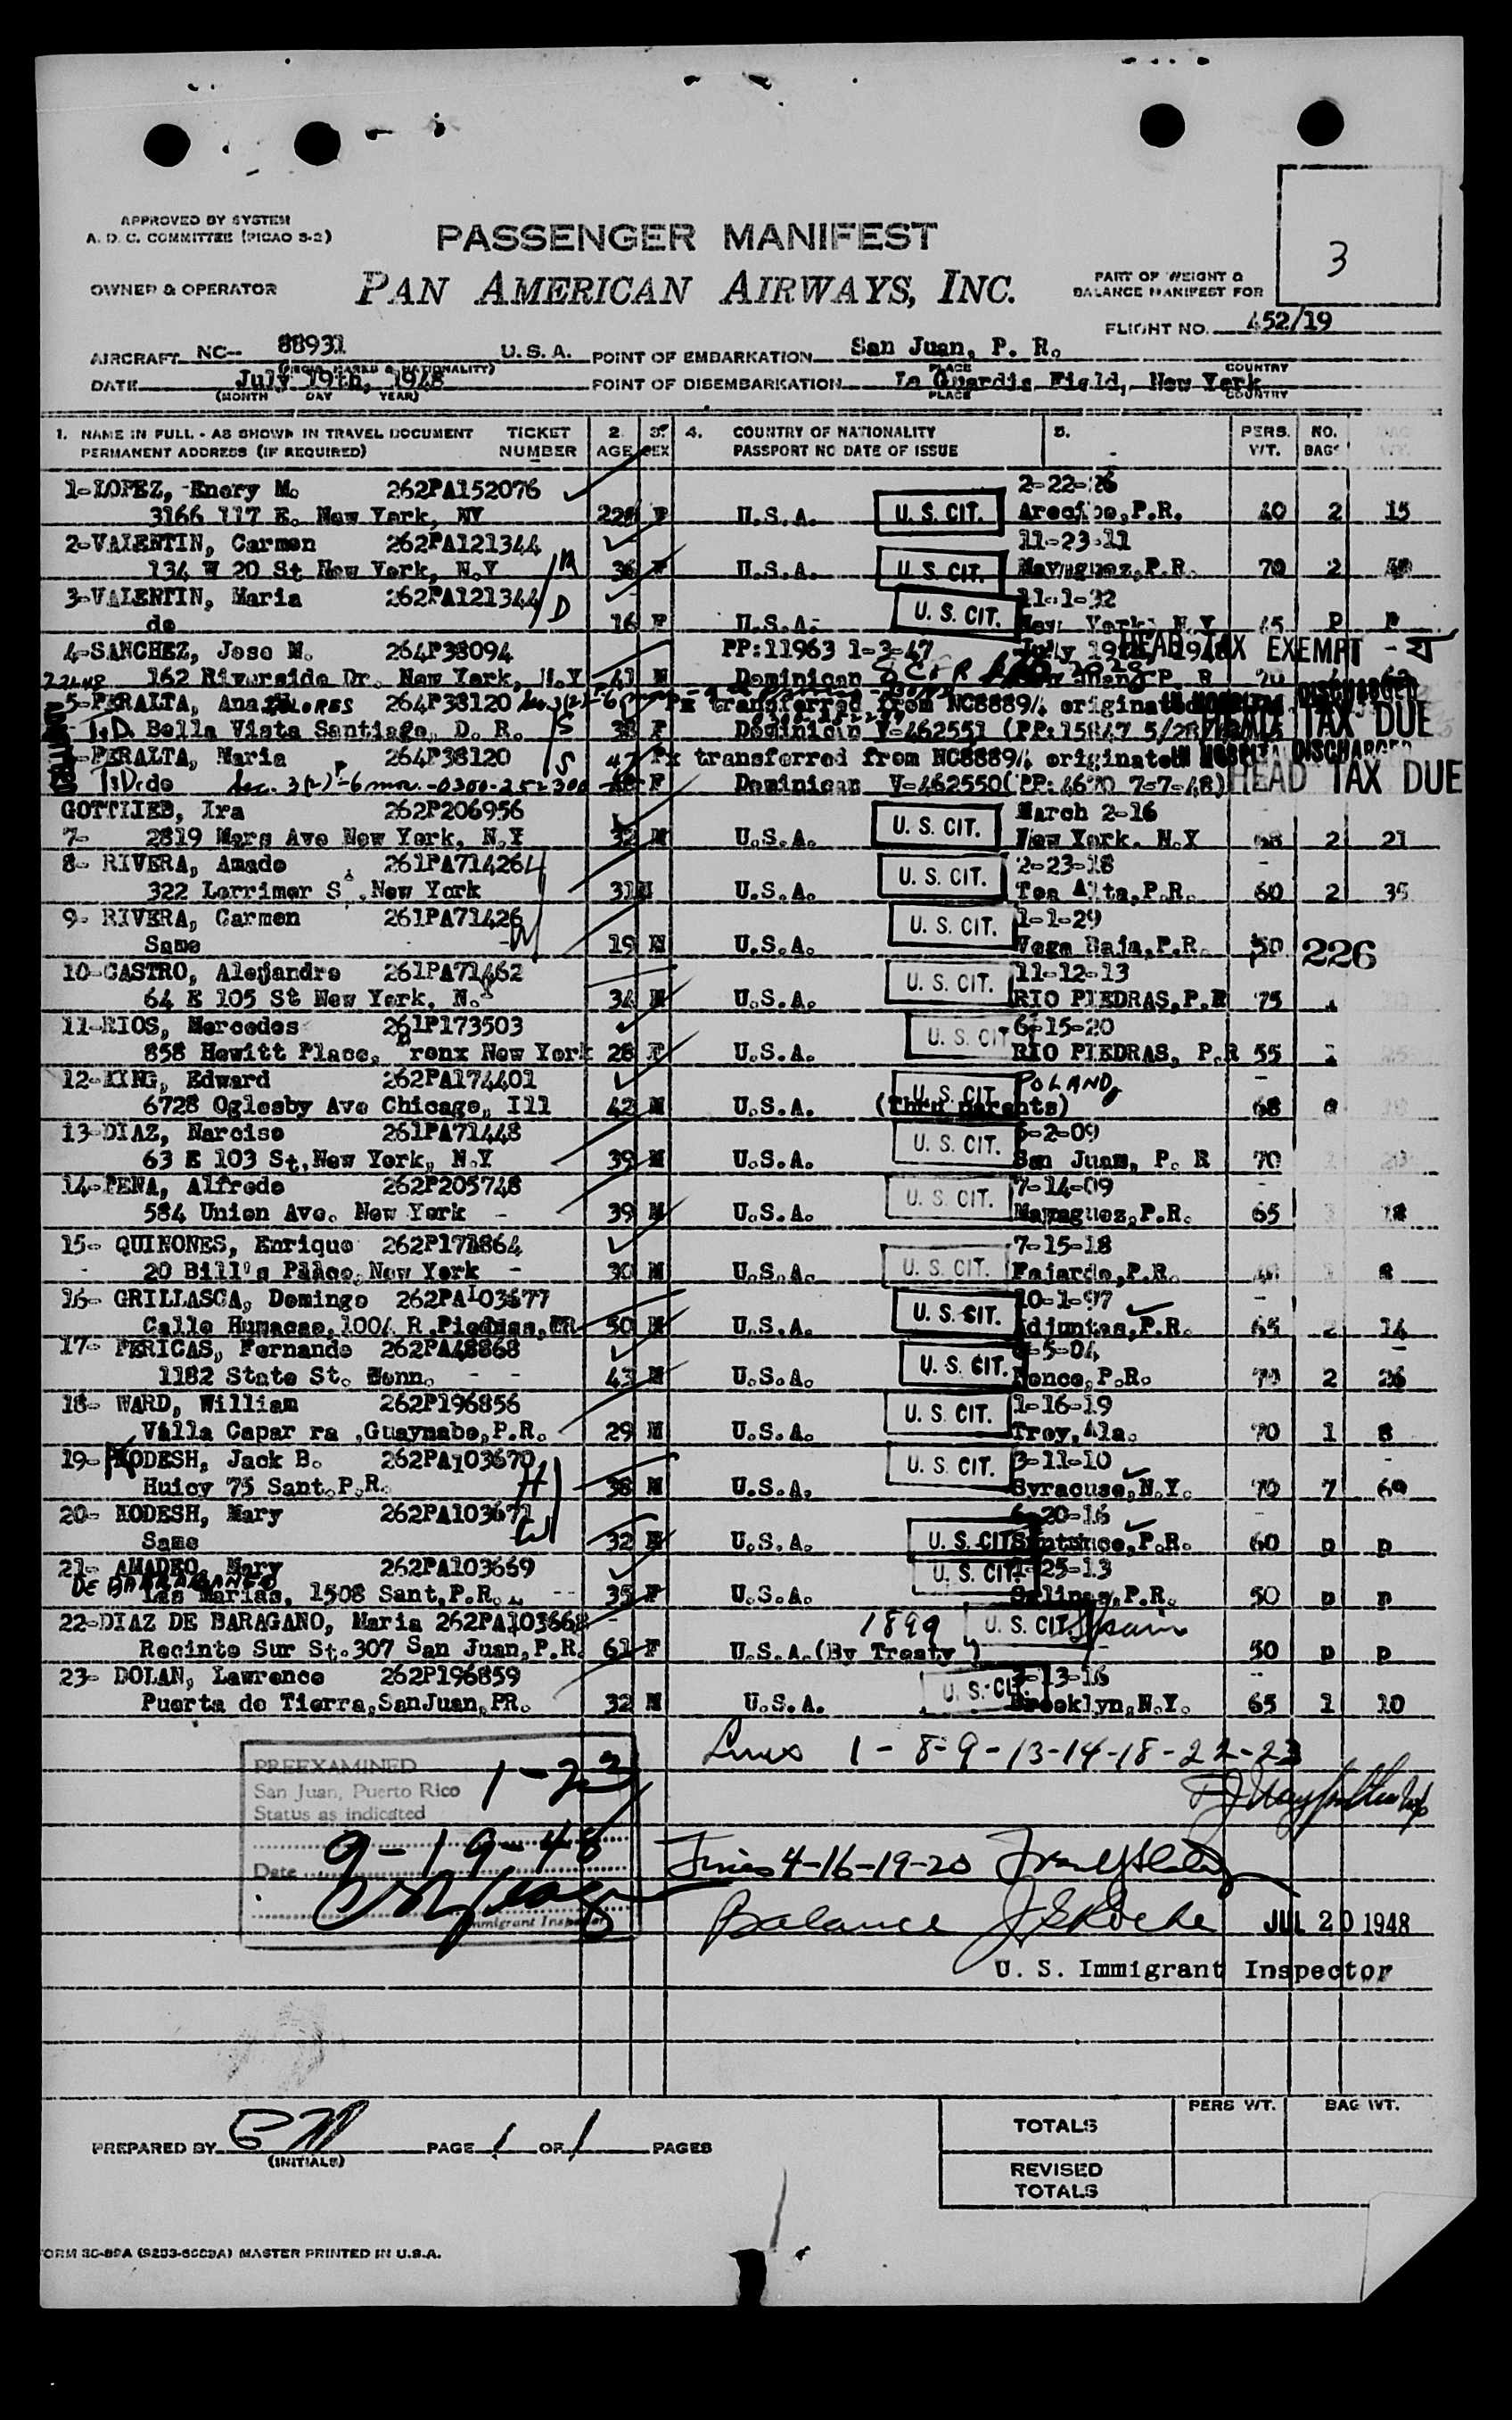 3
APPROVED BY SYSTEM
A. D. C. COMMITTEE (PICAO S-2)
PASSENGER MANIFEST
OWNER & OPERATOR PAN AMERICAN AIRWAYS, INC.
PART OF WEIGHT &
BALANCE MANIFEST FOR
FLIGHT NO. 452/19
AIRCRAFT NC-- 88931 U. S. A. POINT OF EMBARKATION San Juan, P. R.
PLACE COUNTRY
DATE July 19th, 1948 POINT OF DISEMBARKATION La Guardia Field, New York
(MONTH DAY YEAR) PLACE COUNTRY
1. NAME IN FULL - AS SHOWN IN TRAVEL DOCUMENT TICKET 2. 3. 4. COUNTRY OF NATIONALITY 5. PERS. NO.
PERMANENT ADDRESS (IF REQUIRED) NUMBER AGE SEX PASSPORT NO DATE OF ISSUE WT. BAGS
1-LOPEZ, Enery M. 262PA152076 2-22-26
3166 117 E. New York, NY 22 F U.S.A. U. S. CIT. Arecibo,P.R. 40 2 15
2-VALENTIN, Carmen 262PA121344 11-23-11
134 W 20 St New York, N.Y 36 F U.S.A. U. S. CIT. Mayaguez,P.R. 70 2
3-VALENTIN, Maria 262PA121344 D 11-1-32
do 16 F U.S.A. U. S. CIT. New York, N.Y 45 P P
4-SANCHEZ, Jose M. 264P38094 PP:11963 1-3-47 HEAD TAX EXEMPT
162 Riverside Dr. New York, N.Y 41 M Dominican
5-PERALTA, Ana DOLORES 264P38120 Px transferred from NC88894 originated IN HOSPITAL DISCHARGED
Bella Vista Santiago, D. R. S 38 F Dominican V-462551 (PP:15847 5/28 HEAD TAX DUE
PERALTA, Maria 264P38120 S 47 Px transferred from NC88894 originated IN HOSPITAL DISCHARGED
do Sec. 3(2)-6 mos.-0300-252300 F Dominican V-462550(PP:4670 7-7-48) HEAD TAX DUE
GOTTLIEB, Ira 262P206956 March 2-16
7- 2819 Mars Ave New York, N.Y 32 M U.S.A. U. S. CIT. New York, N.Y 68 2 21
8- RIVERA, Amado 261PA71426 H 2-23-18
322 Lorrimer S .New York 31 M U.S.A. U. S. CIT. Toa Alta,P.R. 60 2 35
9- RIVERA, Carmen 261PA71426 W 1-1-29
Same 19 U.S.A. U. S. CIT. Vega Baja,P.R. 50 226
10-CASTRO, Alejandro 261PA71462 11-12-13
64 E 105 St New York, N. 34 M U.S.A. U. S. CIT. RIO PIEDRAS,P.R 75
11-RIOS, Mercedes 261P173503 6-15-20
858 Hewitt Place, Bronx New York 28 F U.S.A. U. S. CIT RIO PIEDRAS, P.R 55
12-KING, Edward 262PA174401 POLAND
6728 Oglesby Ave Chicago, Ill 42 M U.S.A. U. S. CIT. (thru parents) 68
13-DIAZ, Narciso 261PA71448 6-2-09
63 E 103 St,New York, N.Y 39 M U.S.A. U. S. CIT. San Juan, P. R 70
14-PENA, Alfredo 262P205748 7-14-09
584 Union Ave. New York - 39 M U.S.A. U. S. CIT. Mayaguez,P.R. 65
15- QUINONES, Enrique 262P171864 7-15-18
20 Bill's Place,New York - 30 M U.S.A. U. S. CIT. Fajardo,P.R. 8
16- GRILLASCA, Domingo 262PA103677 10-1-97
Calle Humacao,1004 R.Piedras,PR 50 M U.S.A. U. S. CIT. Adjuntas,P.R. 65 2 14
17- PERICAS, Fernando 262PA48868 5-04
1182 State St. Conn. - - 43 M U.S.A. U. S. CIT. Ponce,P.R. 70 2 26
18- WARD, William 262P196856 1-16-19
Villa Capar ra ,Guaynabo,P.R. 29 M U.S.A. U. S. CIT. Troy,Ala. 70 1 8
19- KODESH, Jack B. 262PA103670 H 3-11-10
Huicy 75 Sant.P.R. 38 M U.S.A. U. S. CIT. Syracuse,N.Y. 70 7 69
20- KODESH, Mary 262PA103671 W 6-20-16
Same 32 U.S.A. U. S. CIT Santurce,P.R. 60 p p
21- AMADEO, Mary 262PA103669 25-13
DE BARRAGANO
Las Marias, 1508 Sant,P.R. -- 35 F U.S.A. U. S. CIT. Salinas,P.R. 50 p p
22-DIAZ DE BARAGANO, Maria 262PA103668 1899 U. S. CIT Spain
Recinto Sur St.307 San Juan,P.R. 61 F U.S.A.(By Treaty ) 50 p p
23- DOLAN, Lawrence 262P196859 3-13-16
Puerta de Tierra,SanJuan,PR. 32 M U.S.A. U. S. CIT. Brooklyn,N.Y. 65 1 10
Lines 1-8-9-13-14-18-22-23
PREEXAMINED 1-23
San Juan, Puerto Rico
Status as indicated
Date 9-19-48
Immigrant Inspector
Lines 4-16-19-20
Balance J S Roche JUL 20 1948
U. S. Immigrant Inspector
PREPARED BY PAGE 1 OF 1 PAGES
(INITIALS)
PERS WT. BAG WT.
TOTALS
REVISED
TOTALS
FORM MASTER PRINTED IN U.S.A.